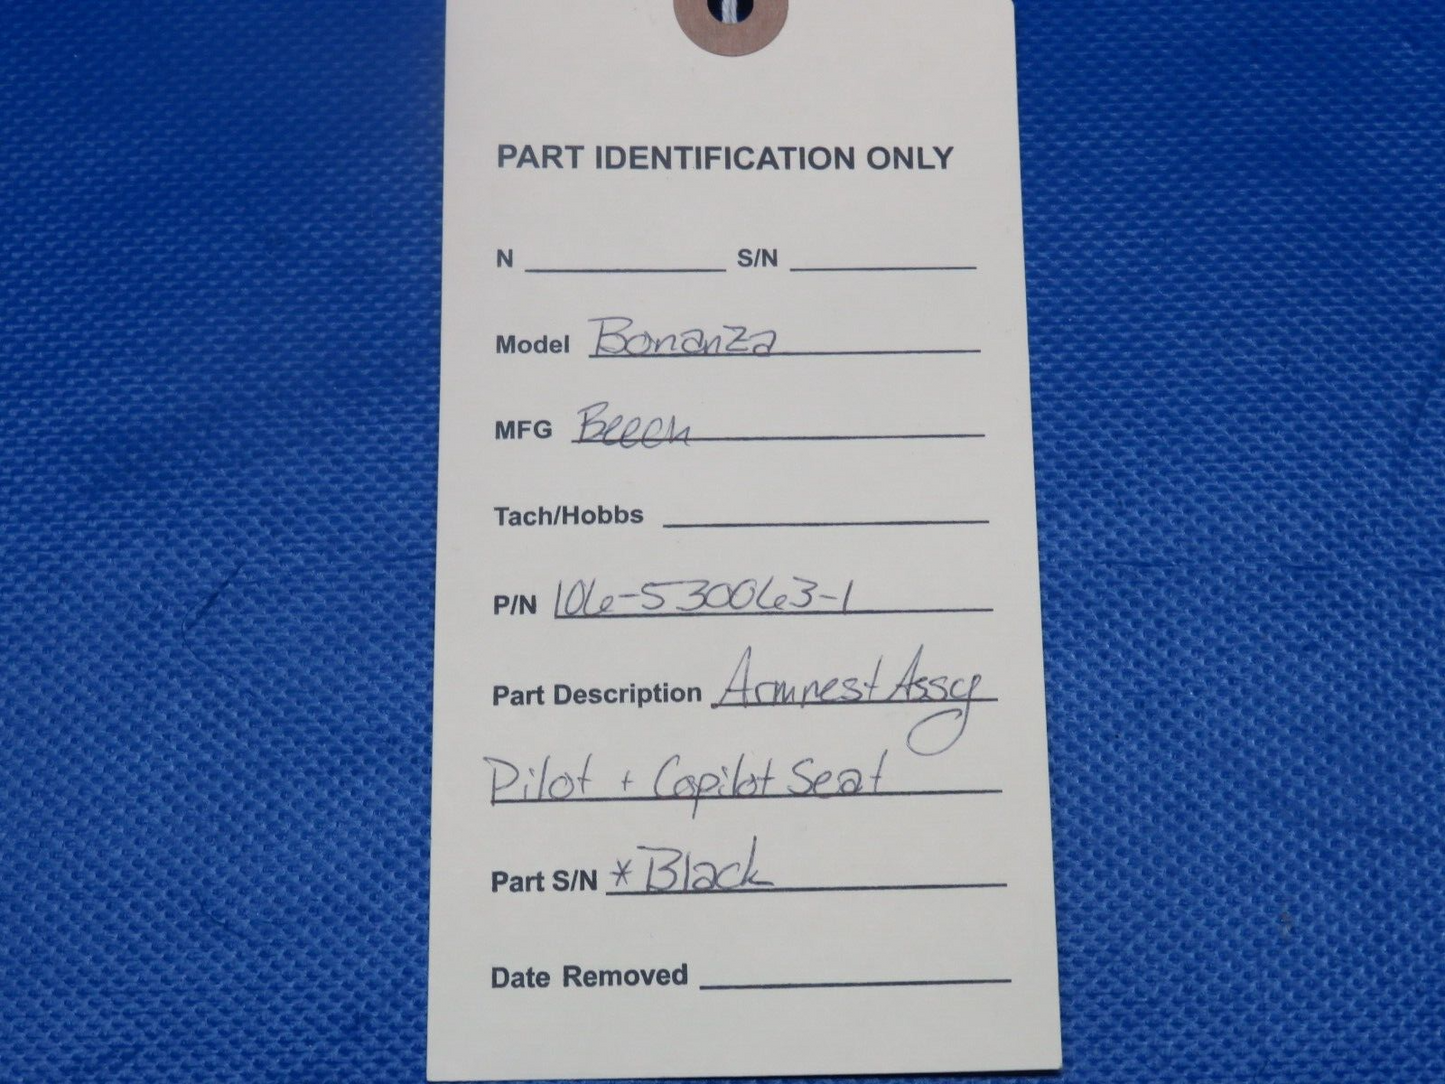 PART IDENTIFICATION ONLY
N S/N
Model Bonanza
MFG Beech
Tach/Hobbs
P/N 106-530063-1
Part Description Armrest Assy
Pilot + Copilot Seat
Part S/N *Black
Date Removed